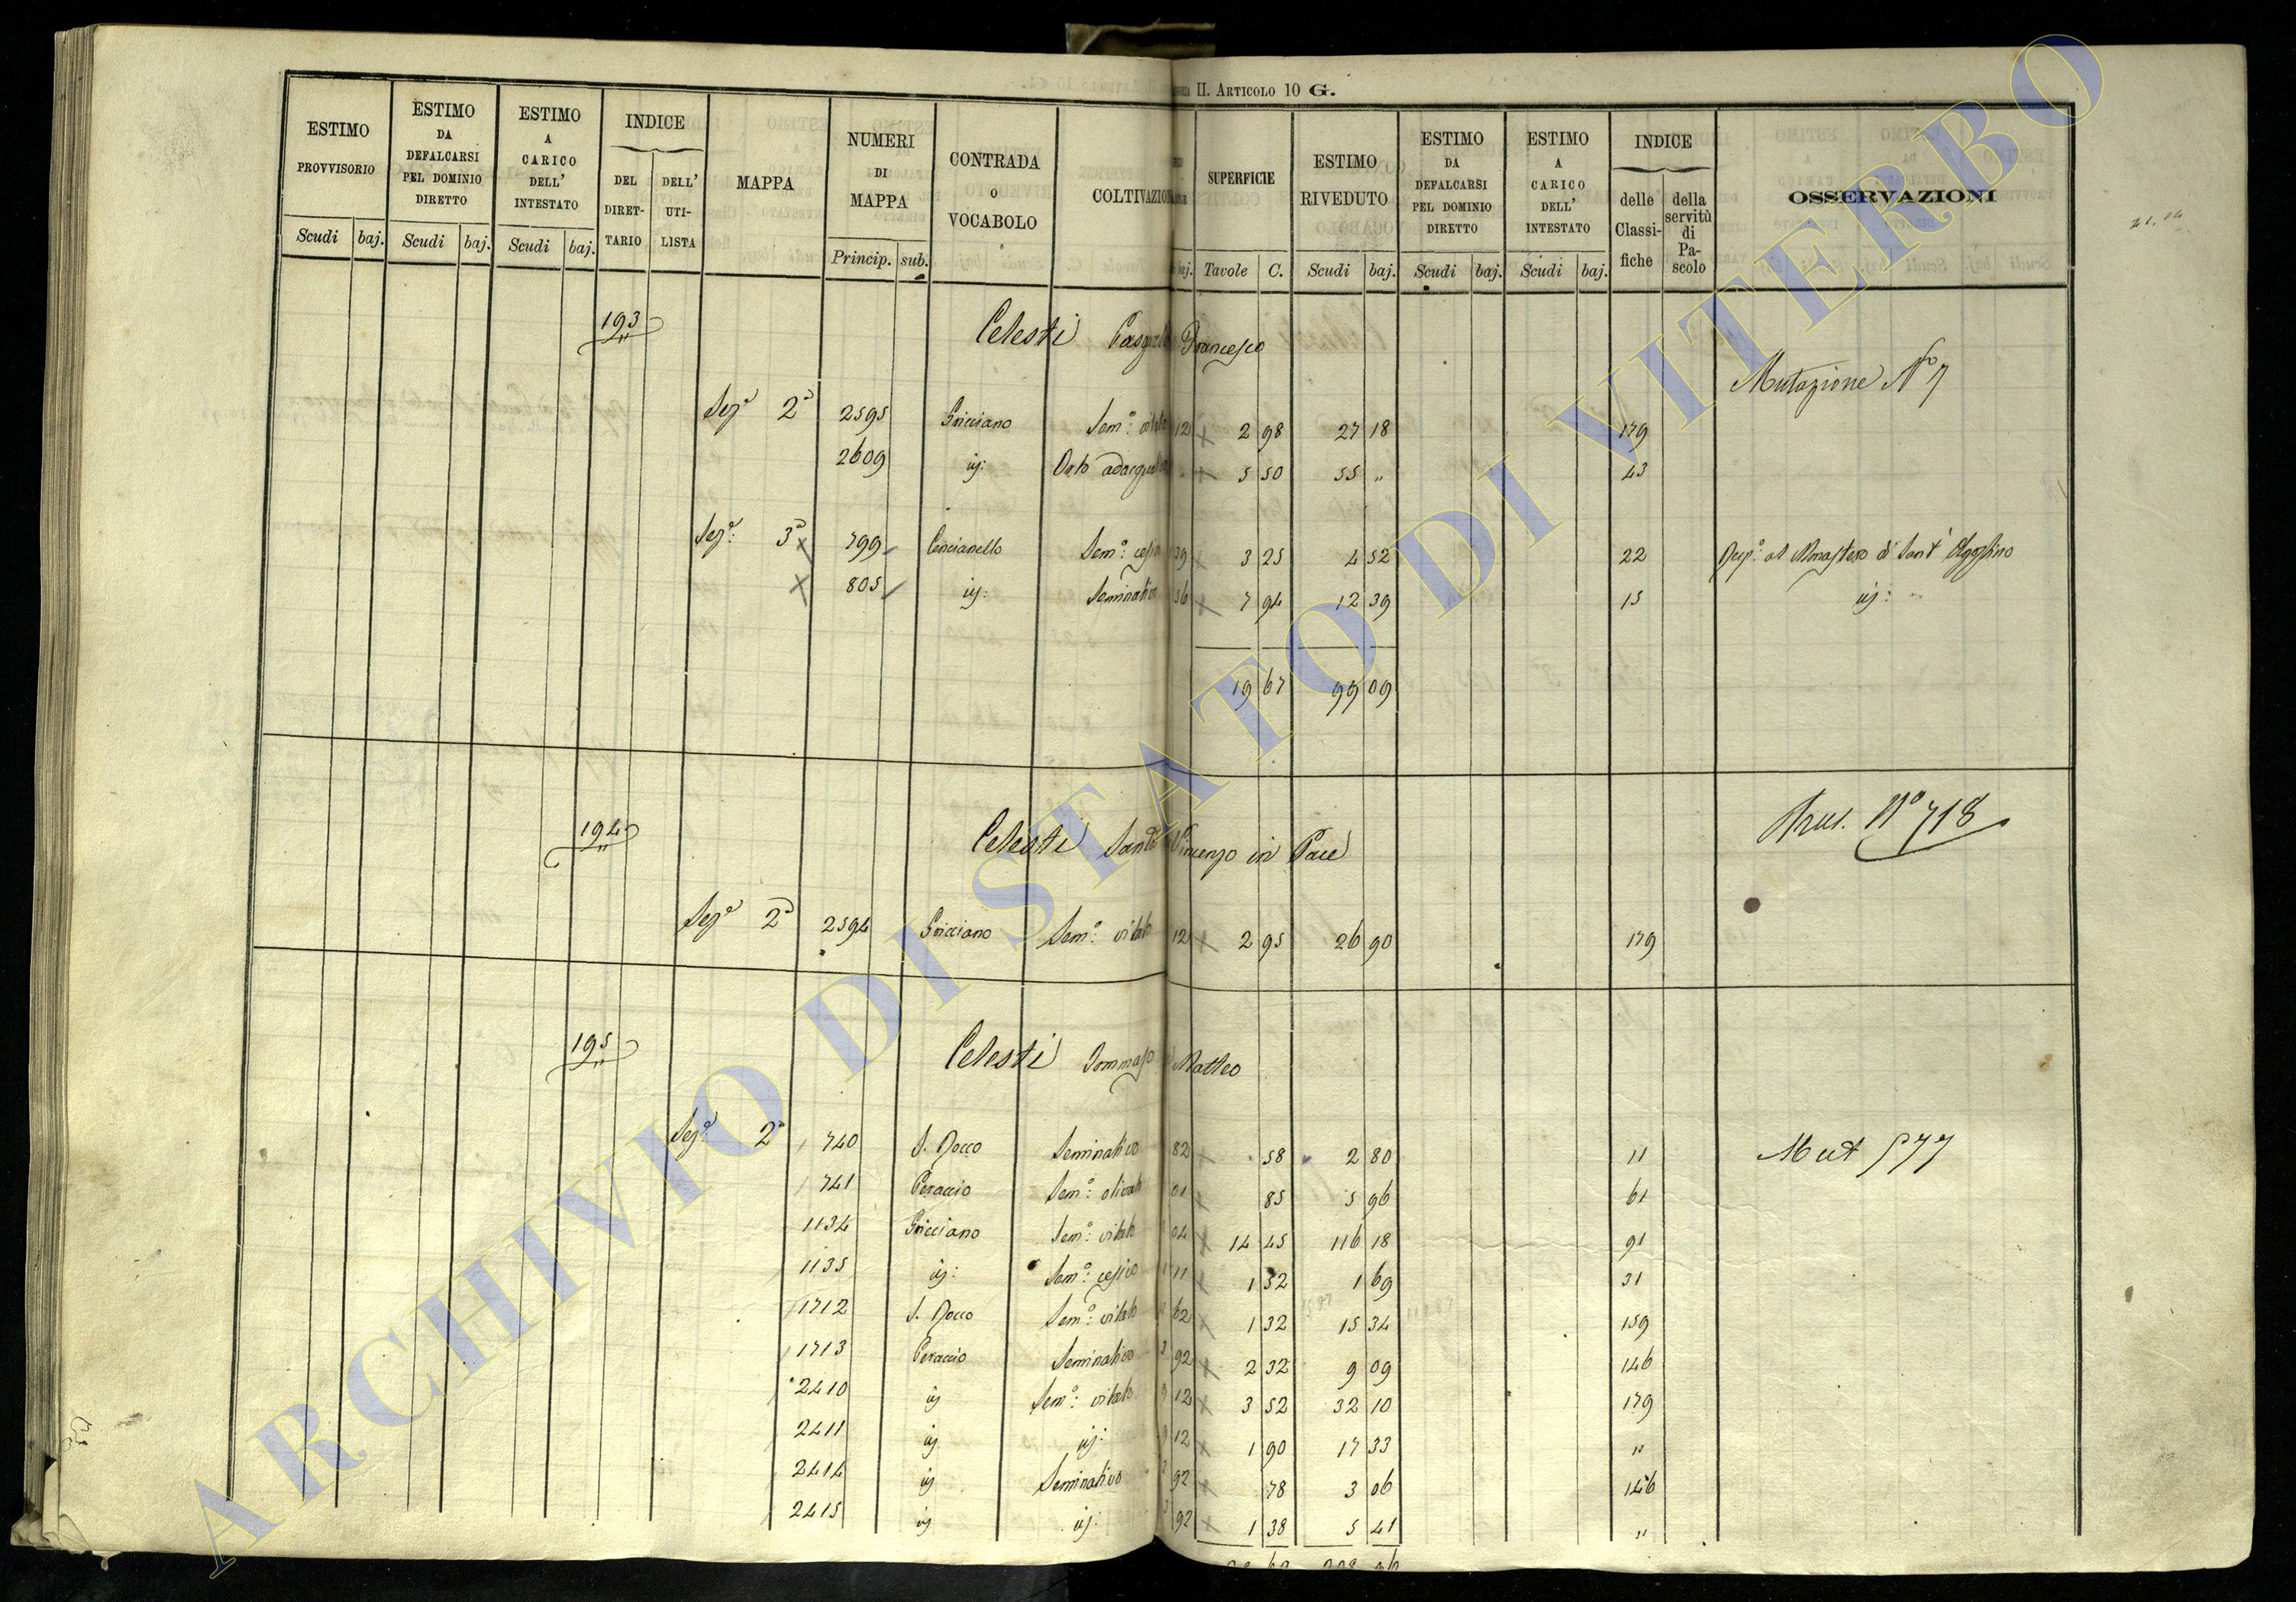 II. Articolo 10 G.
ESTIMO PROVVISORIO Scudi baj.
ESTIMO DA DEFALCARSI PEL DOMINIO DIRETTO Scudi baj.
ESTIMO A CARICO DELL' INTESTATO Scudi baj.
INDICE DEL DIRETTARIO DELL' UTILISTA
MAPPA
NUMERI DI MAPPA Princip. sub.
CONTRADA O VOCABOLO
COLTIVAZION
baj.
SUPERFICIE Tavole C.
ESTIMO RIVEDUTO Scudi baj.
ESTIMO DA DEFALCARSI PEL DOMINIO DIRETTO Scudi baj.
ESTIMO A CARICO DELL' INTESTATO Scudi baj.
INDICE delle Classifiche della servitù di Pascolo
OSSERVAZIONI
193 Celesti Pasquale Francesco
Mutazione No 7
Sez.a 2a 2595 Gricciano Sem.o: vitato 12 2 98 27 18 179
2609 id: Orto adacquato 5 50 55 „ 43
Sez.a: 3a 799 Cencianello Sem.o: 39 3 25 4 52 22 Risp.o al Monastero di Sant' Agostino
805 id: Seminativo 56 7 94 12 39 15 id:
19 67 99 09
194 Celesti Santo Vincenzo in Pace
No 718
Sez.a 2a 2594 Gricciano Sem.o: vitato 12 2 95 26 90 179
195 Celesti Tommaso Matteo
Sez.a 2a 740 S. Rocco Seminativo 82 58 2 80 11 Mut 577
741 Peraccio Sem.o: olivato 01 85 5 96 61
1134 Gricciano Sem.o: vitato 04 14 45 116 18 91
1135 id: Sem.o: cesivo 11 1 52 1 69 31
1712 S. Rocco Sem.o: vitato 62 1 32 15 34 159
1713 Peraccio Seminativo 3 92 2 32 9 09 146
2410 id Sem.o: vitato 9 12 3 52 32 10 179
2411 id id: 9 12 1 90 17 33 „
2414 id Seminativo 92 78 3 06 146
2415 id id: 3 92 1 38 5 41 „
ARCHIVIO DI STATO DI VITERBO